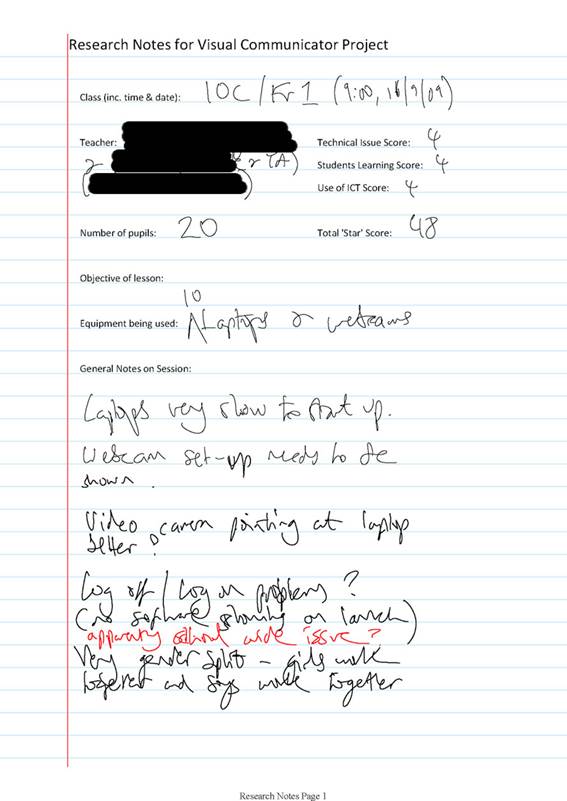 Research Notes for Visual Communicator Project
Class (inc. time & date): 10C/Fr1 (9:00, 16/9/09)
Teacher:
& TA)
Technical Issue Score: 4
Students Learning Score: 4
Use of ICT Score: 4
Number of pupils: 20
Total 'Star' Score: 48
Objective of lesson:
10
Equipment being used: Laptops & webcams
General Notes on Session:
Laptops very slow to start up.
Webcam set-up needs to be
shown.
Video camera pointing at laptop
better?
Log off / Log on problems?
(no software showing on launch)
apparently school wide issue?
Very gender split - girls work
together and boys work together
Research Notes Page 1